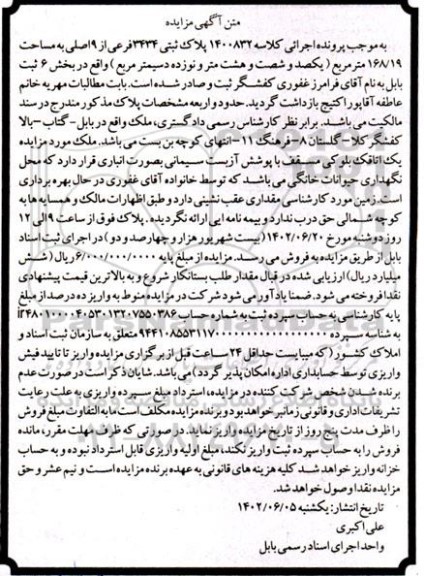 متن آگهی مزایده
به موجب پرونده اجرائی کلاسه ۱۴۰۰۸۳۲ پلاک ثبتی ۳۴۳۴ فرعی از ۹ اصلی به مساحت
۱۶۸/۱۹ متر مربع ( یکصد و شصت و هشت متر و نوزده دسیمتر مربع ) واقع در بخش ۶ ثبت
بابل به نام آقای فرامرز غفوری کفشگر ثبت و صادر شده است. بابت مطالبات مهریه خانم
عاطفه آقاپور اکتیج بازداشت گردید. حدود و اربعه مشخصات پلاک مذکور مندرج در سند
مالکیت می باشد. برابر نظر کارشناس رسمی دادگستری، ملک واقع در بابل - گتاب - بالا
کفشگر کلا - گلستان ۸ - فرهنگ ۱۱ - انتهای کوچه بن بست می باشد. ملک مورد مزایده
یک اتاقک بلوکی مسقف با پوشش آزبست سیمانی بصورت انباری قرار دارد که محل
نگهداری حیوانات خانگی می باشد که توسط خانواده آقای غفوری در حال بهره برداری
است. زمین مورد کارشناسی مقداری عقب نشینی دارد و طبق اظهارات مالک و همسایه ها به
کوچه شمالی حق درب ندارد و بیمه نامه ایی ارائه نگردیده. پلاک فوق از ساعت ۹ الی ۱۲
روز دوشنبه مورخ ۱۴۰۲/۰۶/۲۰ (بیست شهریور هزار و چهارصد و دو) در اجرای ثبت اسناد
بابل از طریق مزایده به فروش می رسد. مزایده از مبلغ پایه ۶/۰۰۰/۰۰۰/۰۰۰ ریال (شش
میلیارد ریال) ارزیابی شده در قبال مقدار طلب بستانکار شروع و به بالاترین قیمت پیشنهادی
نقدا فروخته می شود. ضمنا یادآور می شود شرکت در مزایده منوط به واریز ده درصد از مبلغ
پایه کارشناسی به حساب سپرده ثبت به شماره حساب
به شناسه سپرده متعلق به سازمان ثبت اسناد و
املاک کشور ( که میبایست حداقل ۲۴ ساعت قبل از برگزاری مزایده واریز تا تایید فیش
واریزی توسط حسابداری اداره امکان پذیر گردد) می باشد. شایان ذکر است در صورت عدم
برنده شدن شخص شرکت کننده در مزایده، استرداد مبلغ سپرده واریزی به علت رعایت
تشریفات اداری و قانونی زمانبر خواهد بود و برنده مزایده مکلف است مابه التفاوت مبلغ فروش
را ظرف مدت پنج روز از تاریخ مزایده واریز نماید. در صورتی که ظرف مهلت مقرر، مانده
فروش را به حساب سپرده ثبت واریز نکند، مبلغ اولیه واریزی قابل استرداد نبوده و به حساب
خزانه واریز خواهد شد کلیه هزینه های قانونی به عهده برنده مزایده است و نیم عشر و حق
مزایده نقدا وصول خواهد شد.
تاریخ انتشار: یکشنبه ۱۴۰۲/۰۶/۰۵
علی اکبری
واحد اجرای اسناد رسمی بابل